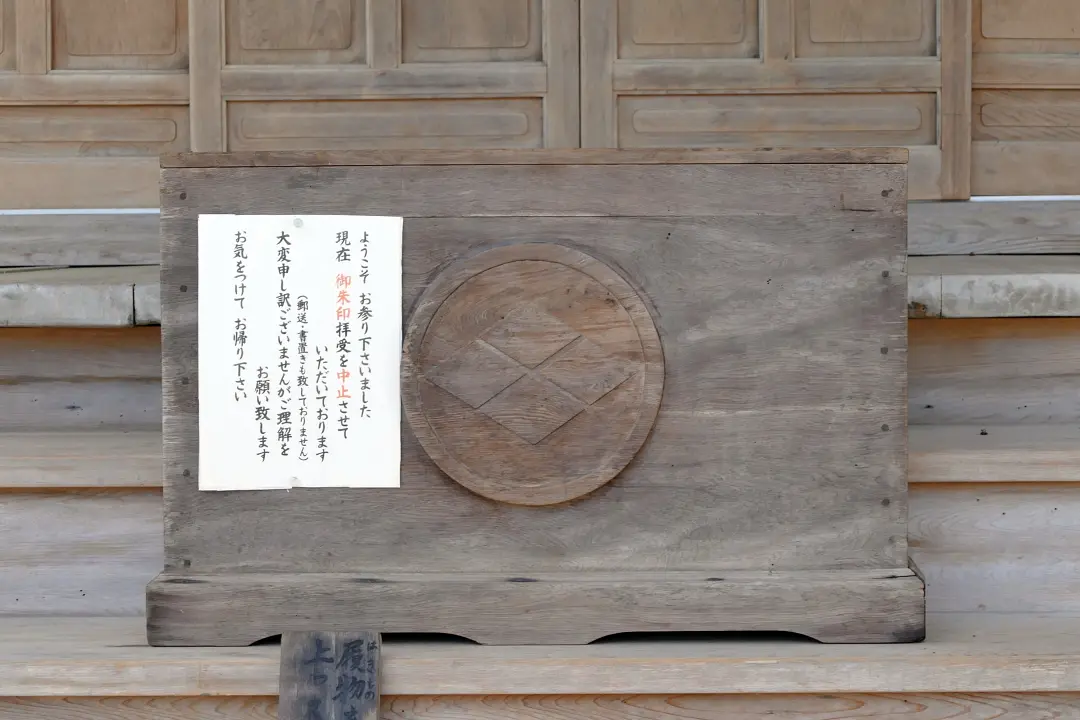 ようこそ お参り下さいました
現在 御朱印拝受を中止させて
いただいております
(郵送・書置きも致しておりません)
大変申し訳ございませんがご理解を
お願い致します
お気をつけて お帰り下さい
履物
はきもの
上